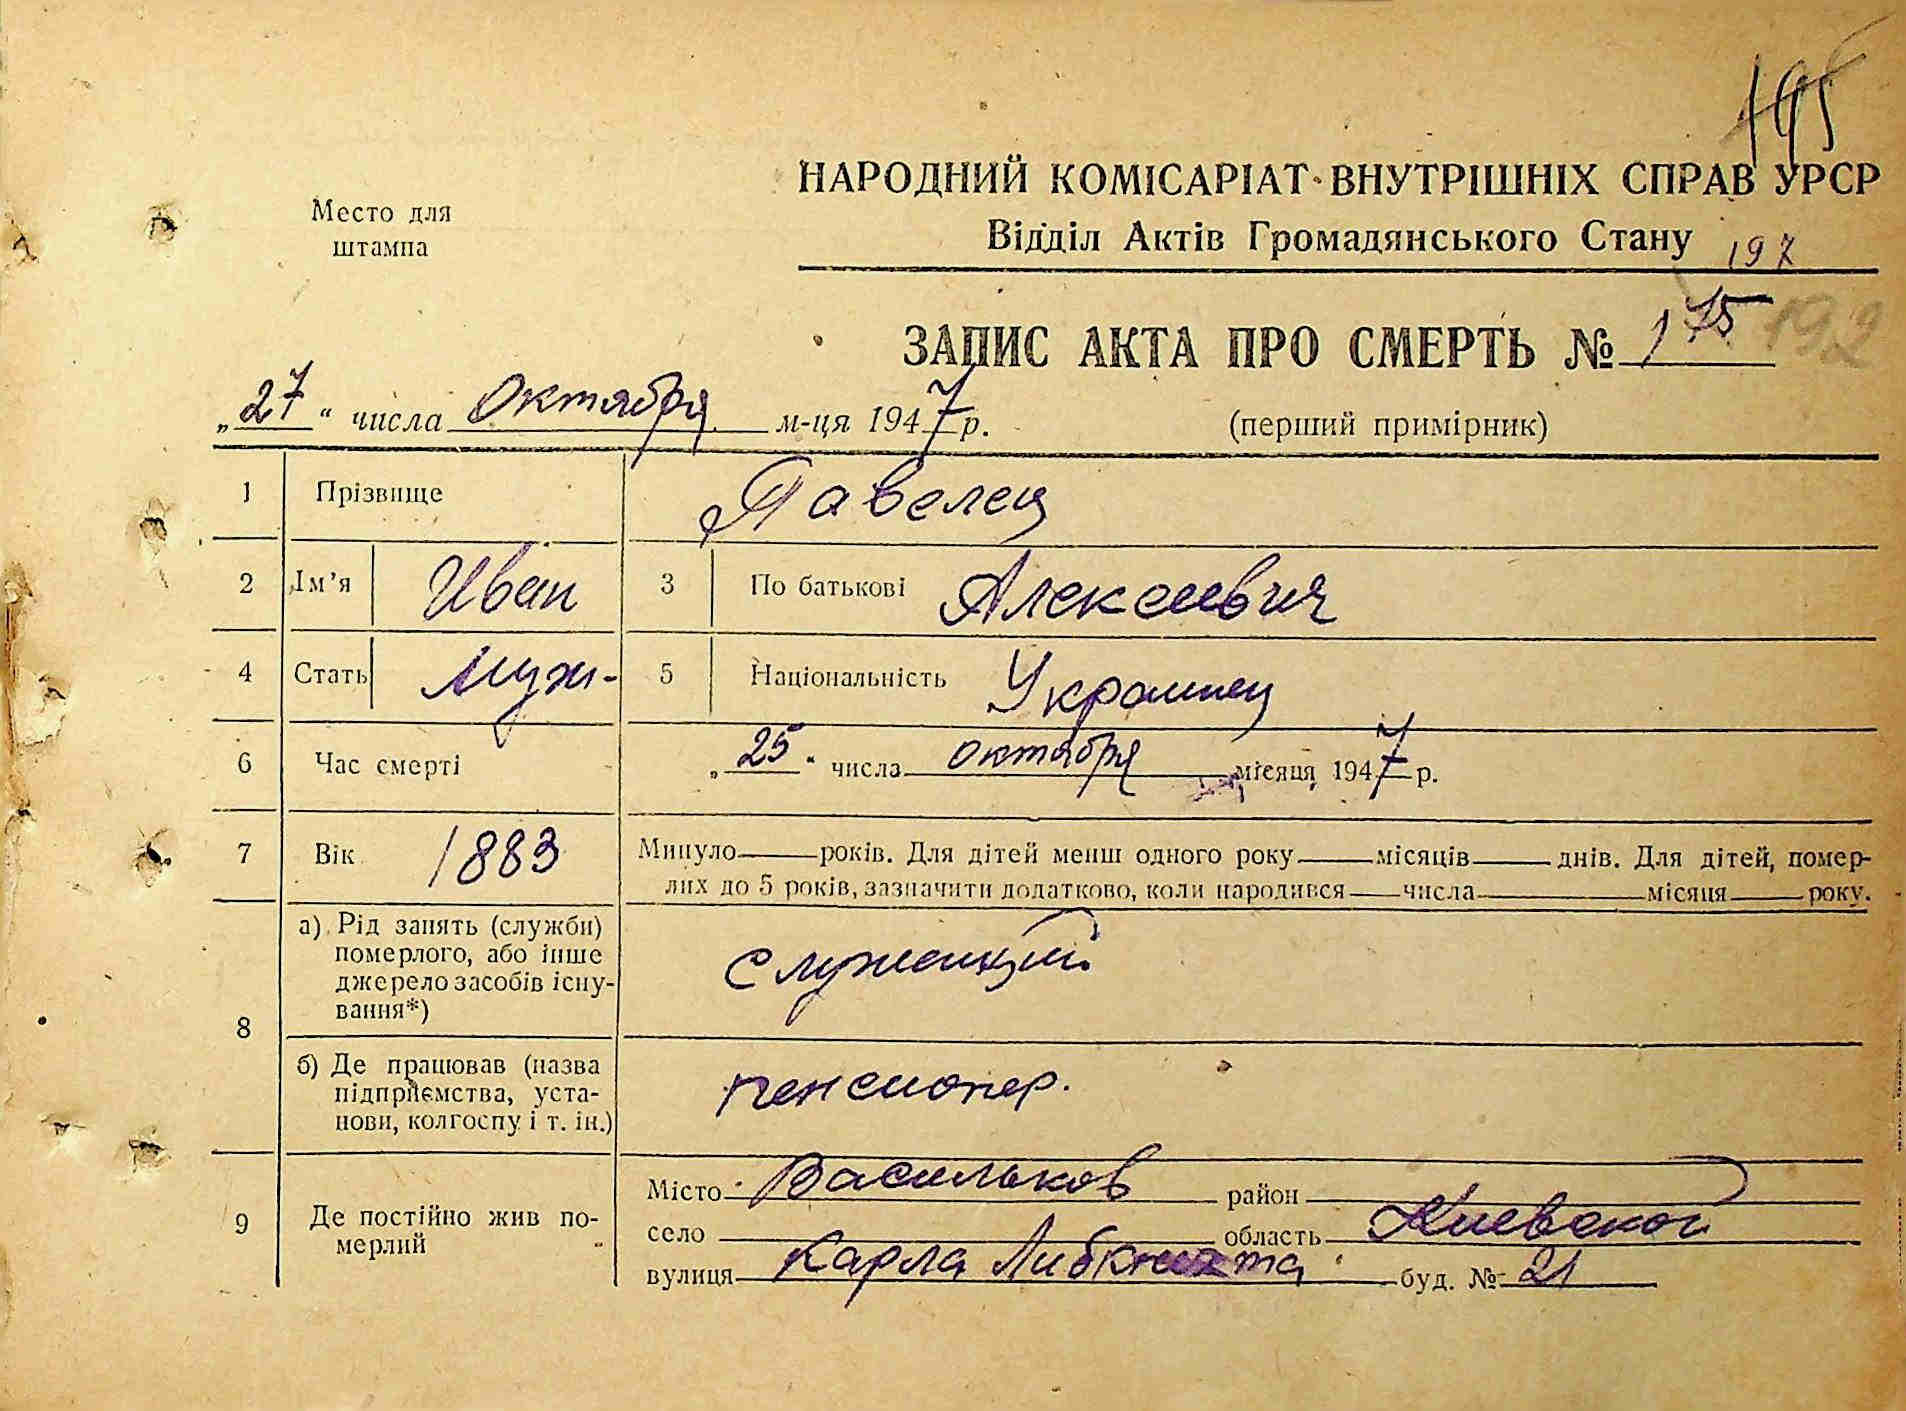 195
НАРОДНИЙ КОМІСАРІАТ ВНУТРІШНІХ СПРАВ УРСР
Место для
штампа
Відділ Актів Громадянського Стану 197
ЗАПИС АКТА ПРО СМЕРТЬ № 175 192
„27“ числа Октября м-ця 1947 р. (перший примірник)
1 Прізвище Павелец
2 Ім’я Иван 3 По батькові Алексеевич
4 Стать Муж- 5 Національність Украинец
6 Час смерті „25“ числа октября місяця 1947 р.
7 Вік 1883 Минуло років. Для дітей менш одного року місяців днів. Для дітей, помер-
лих до 5 років, зазначити додатково, коли народився числа місяця року.
8 а) Рід занять (служби)
померлого, або інше
джерело засобів існу-
вання*)
служащий
б) Де працював (назва
підприємства, уста-
нови, колгоспу і т. ін.)
пенсионер.
9 Де постійно жив по-
мерлий
Місто Васильков район
село область Киевской
вулиця Карла Либкнихта буд. № 21